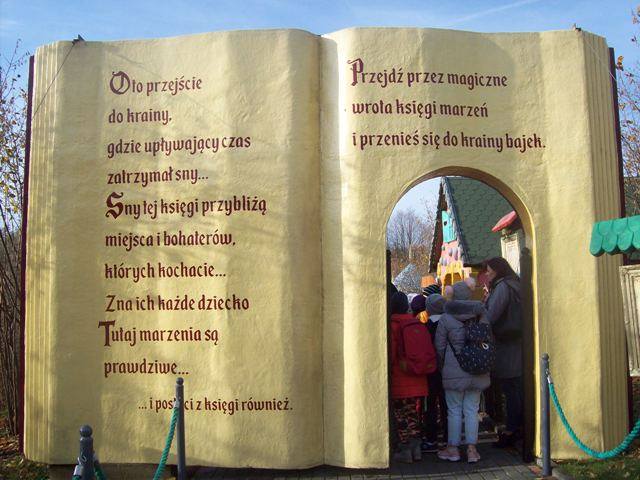 Oto przejście
do krainy,
gdzie upływający czas
zatrzymał sny...
Sny tej księgi przybliżą
miejsca i bohaterów,
których kochacie...
Zna ich każde dziecko
Tutaj marzenia są
prawdziwe...
...i z księgi również.
Przejdź przez magiczne
wrota księgi marzeń
i przenieś się do krainy bajek.